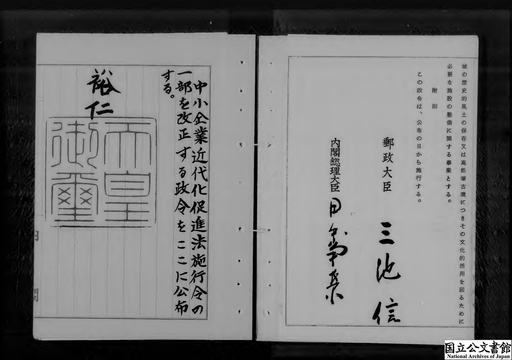 域の歴史的風土の保存又は高松塚古墳につきその文化的活用を図るために
必要な施設の整備に関する事業とする。
附則
この政令は、公布の日から施行する。
郵政大臣 三池信
内閣総理大臣
中小企業近代化促進法施行令の
一部を改正する政令をここに公布
する。
裕仁
天皇
御璽
国立公文書館
National Archives of Japan